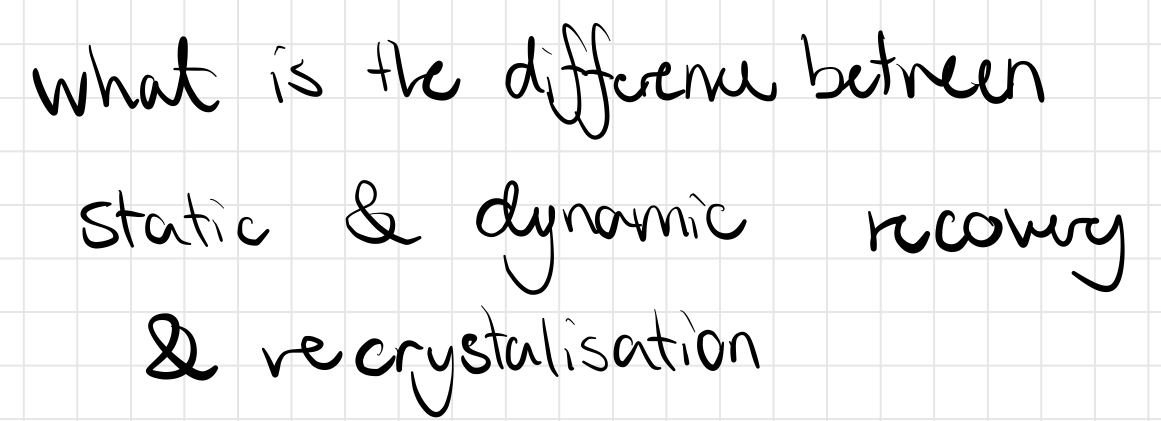 what is the difference between
static & dynamic recovery
& recrystalisation